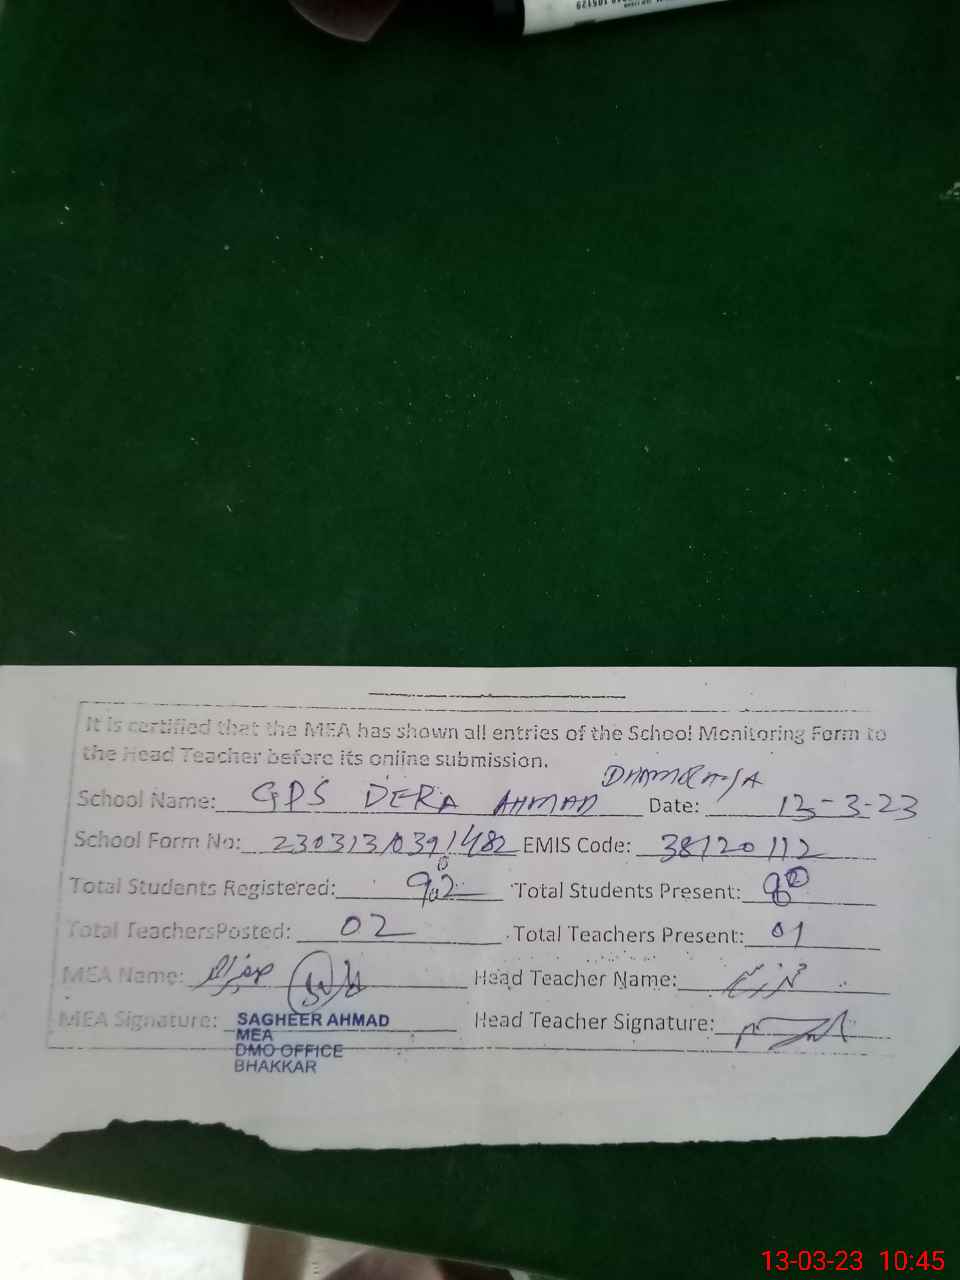 It is certified that the MEA has shown all entries of the School Monitoring Form to
the Head Teacher before its online submission.
School Name: GPS DERA AHMAD Date: 13-3-23
School Form No: EMIS Code: 38120112
Total Students Registered: 92 Total Students Present:
Total TeachersPosted: 02 Total Teachers Present: 01
MEA Name: Head Teacher Name:
MEA Signature: SAGHEER AHMAD Head Teacher Signature:
MEA
DMO OFFICE
BHAKKAR
13-03-23 10:45